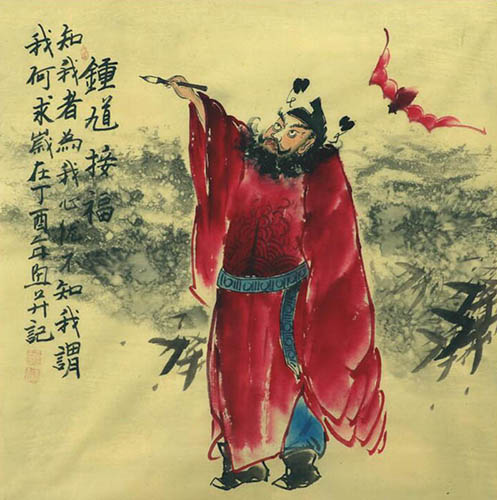 鍾馗接福
知我者為我心忧不知我謂
我何求歲在丁酉年并記